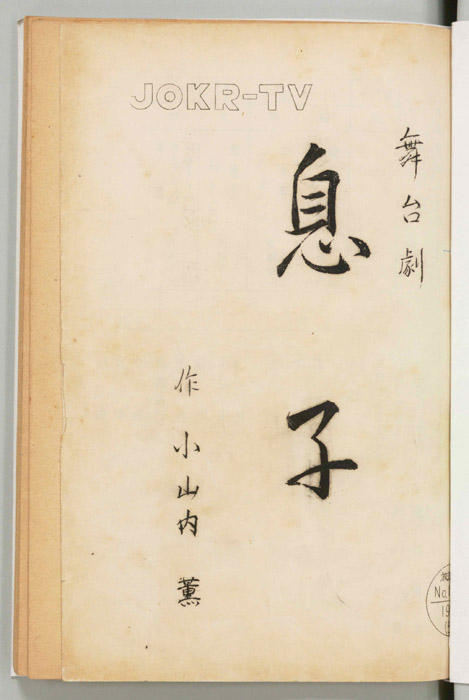 JOKR-TV
舞台劇
息子
作 小山内 薫